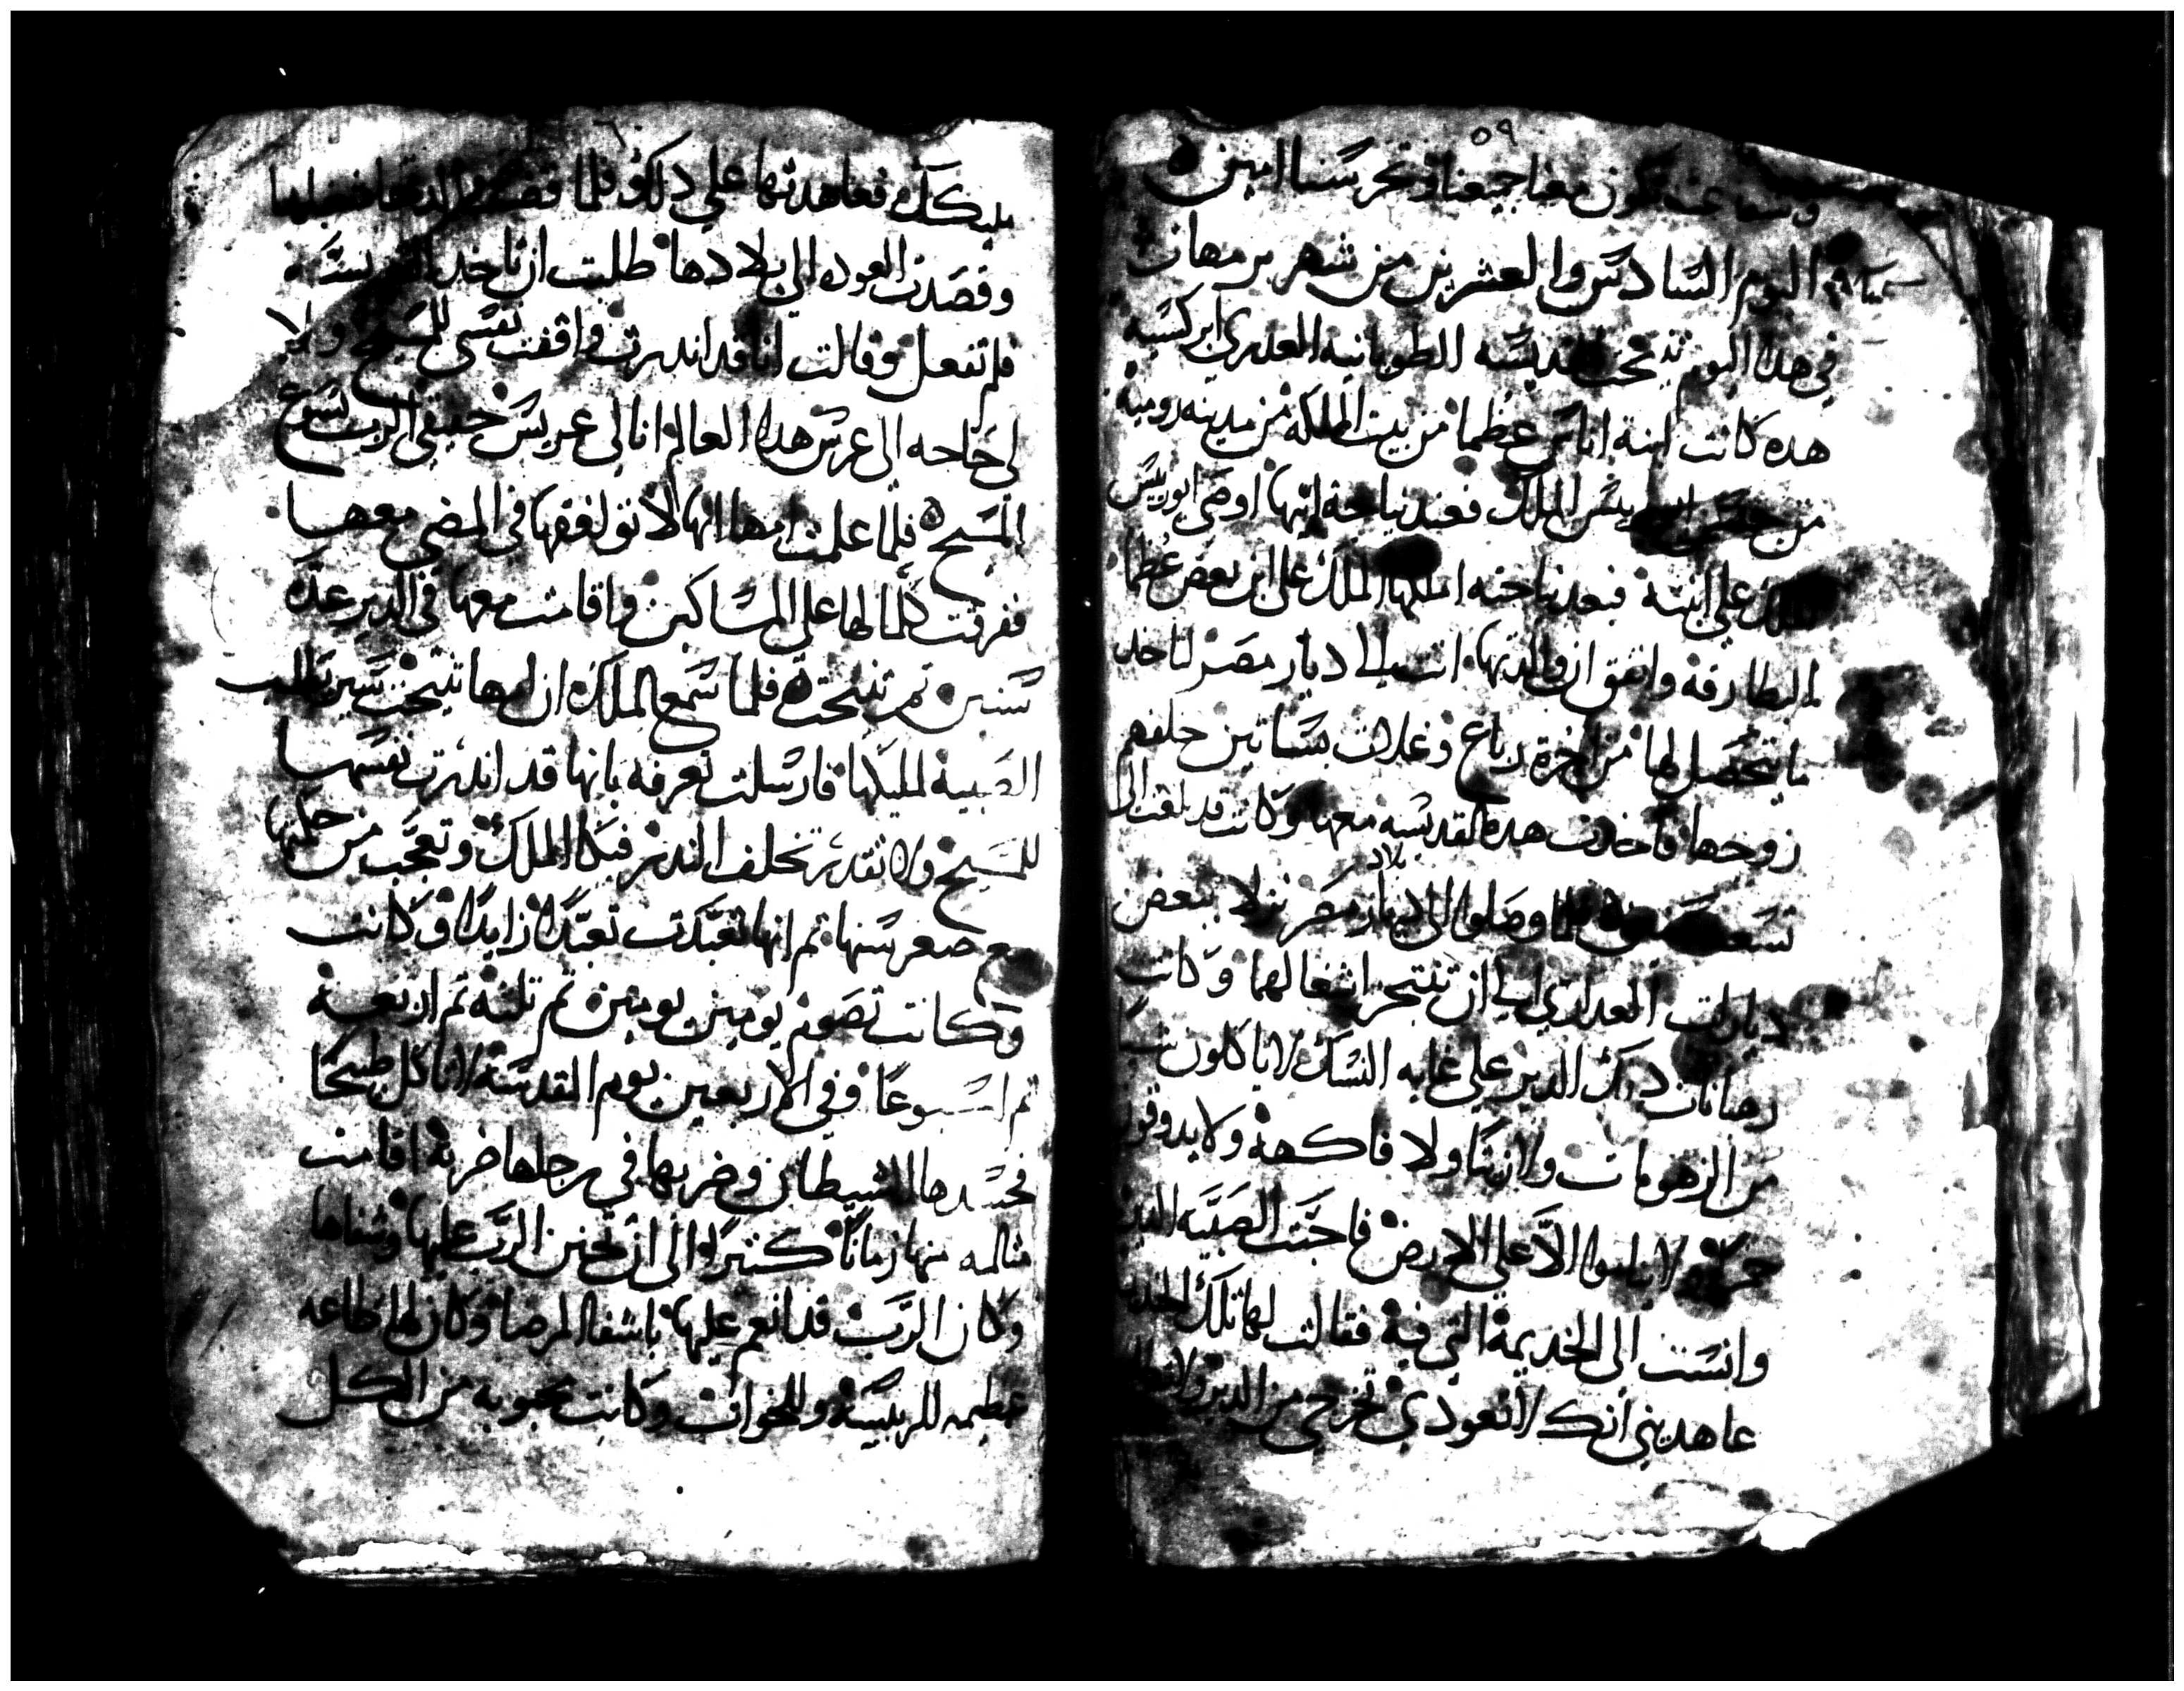 ٥٩
وشفاعته تكون معنا جميعنا وتحرسنا امين ه
اليوم السادس والعشرين من شهر برمهات
في هدا اليوم تنيحت القديسه الطوبانيه العدري ابركسيه
هده كانت ابنة اناس عظما من بيت المملكه من مدينه روميه
من جنس الملك فعند نياحة ابيها اوصى انوريس
الملك على ابنته فبعد نياحته املكها الملك على ابن بعض عظما
البطارقه واتفق ان والدتها اتت الي ديار مصر لتاخد
ما يتحصل لها من اجرة رباع وغلات بساتين خلفهم
زوجها فاخدت هده القديسه معها وكانت قد بلغت الى
تسعة فلما وصلوا الى ديار مصر نزلا ببعض
بلاد
ديارات العداري الي ان تنتجز اشغالهما وكانت
رهبانات دلك الدير على غايه النسك لا ياكلون
من الزهومات ولا زيتا ولا فاكهة ولا يدوقون
خمر لا يناموا الا على الارض فاحبت الصبيه الدير
وانست الى الخديمة التي فيه فقالت لها تلك الخديمه
عاهديني انك لا تعودي تخرجي من الدير ولا
فعاهدتها علي دلك فلما
وقصدت العوده الي بلادها طلبت ان تاخد القديسه
فلم تفعل وقالت انا قد اندرت واقفت نفسي للمسيح ولا
لي حاحه الى عرس هدا العالم انا لي عريس حقيقي الرب يسوع
المسيح ه فلما علمت امها انها لا توافقها في المضي معها
ففرقت كلما لها على المساكين واقامت معها في الدير عدة
سنين تم تنيحت ه فلما سمع الملك ان امها تنيحت سير طالب
الصبية لمليكها فارسلت تعرفه بانها قد اندرت نفسها
للمسيح ولا تقدر تخلف الندر فبكا الملك وتعجب من حكمتها
مع صغر سنها تم انها تعبدت تعبدا زايدا وكانت
وكانت تصوم يومين يومين تم تلتة تم اربعة
تم اسبوعا وفي الاربعين يوم المقدسة لا تاكل طبيخا
فحسدها الشيطان وضربها في رجلها ضربة اقامت
متالمه منها زمانا كتيرا الى ان تحنن الرب عليها وشفاها
وكان الرب قد انعم عليها باشفا المرضا وكان لها طاعه
عظيمه للريسة وللخوات وكانت محبوبه من الكل